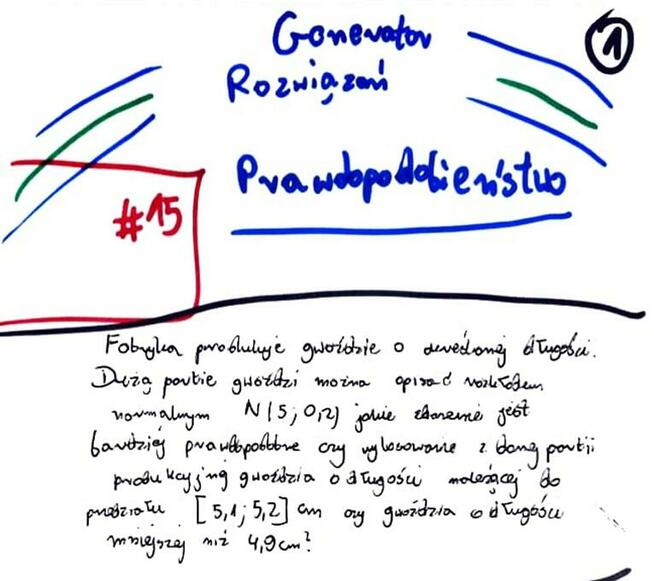 Generator
1
Rozwiązań
Prawdopodobieństwo
#15
Fabryka produkuje gwoździe o określonej długości.
Dużą partię gwoździ można opisać rozkładem
normalnym N(5; 0,2) jakie zdarzenie jest
bardziej prawdopodobne czy wylosowanie z danej partii
produkcyjnej gwoździa o długości należącej do
przedziału [5,1; 5,2] cm czy gwoździa o długości
mniejszej niż 4,9cm?